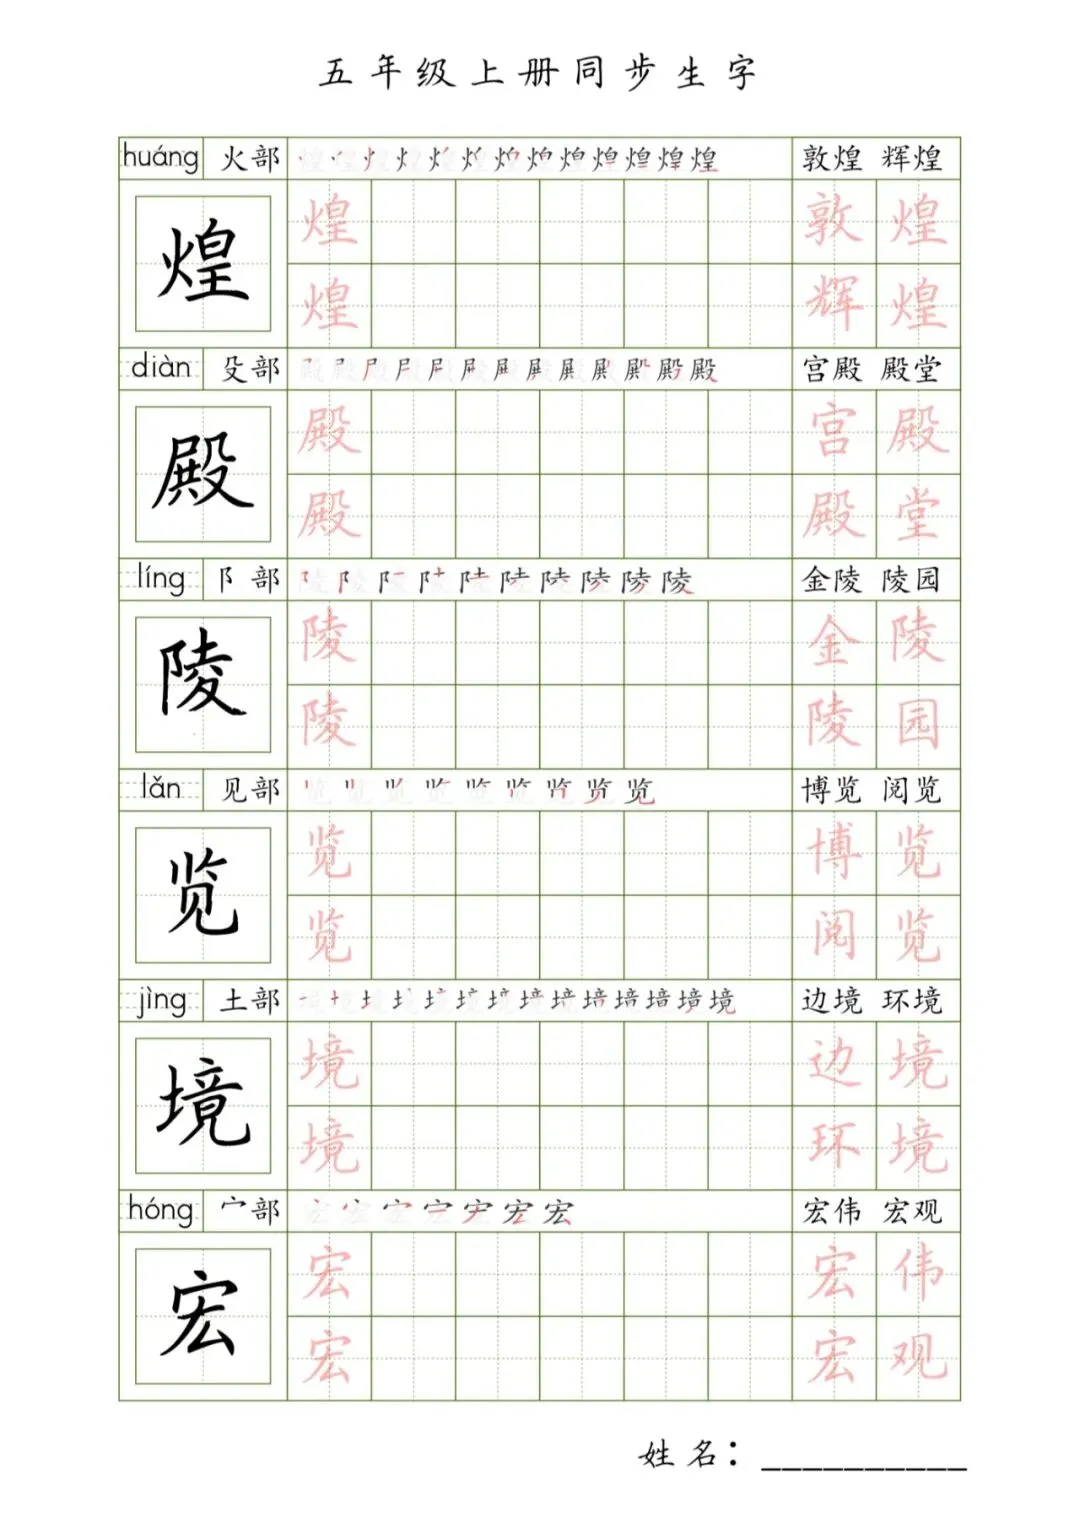 五年级上册同步生字
huáng 火部 煌 敦煌 辉煌
煌 煌 敦 煌
煌 辉 煌
diàn 殳部 殿 宫殿 殿堂
殿 殿 宫 殿
殿 殿 堂
líng 阝部 陵 金陵 陵园
陵 陵 金 陵
陵 陵 园
lǎn 见部 览 博览 阅览
览 览 博 览
览 阅 览
jìng 土部 境 边境 环境
境 境 边 境
境 环 境
hóng 宀部 宏 宏伟 宏观
宏 宏 宏 伟
宏 宏 观
姓名：__________